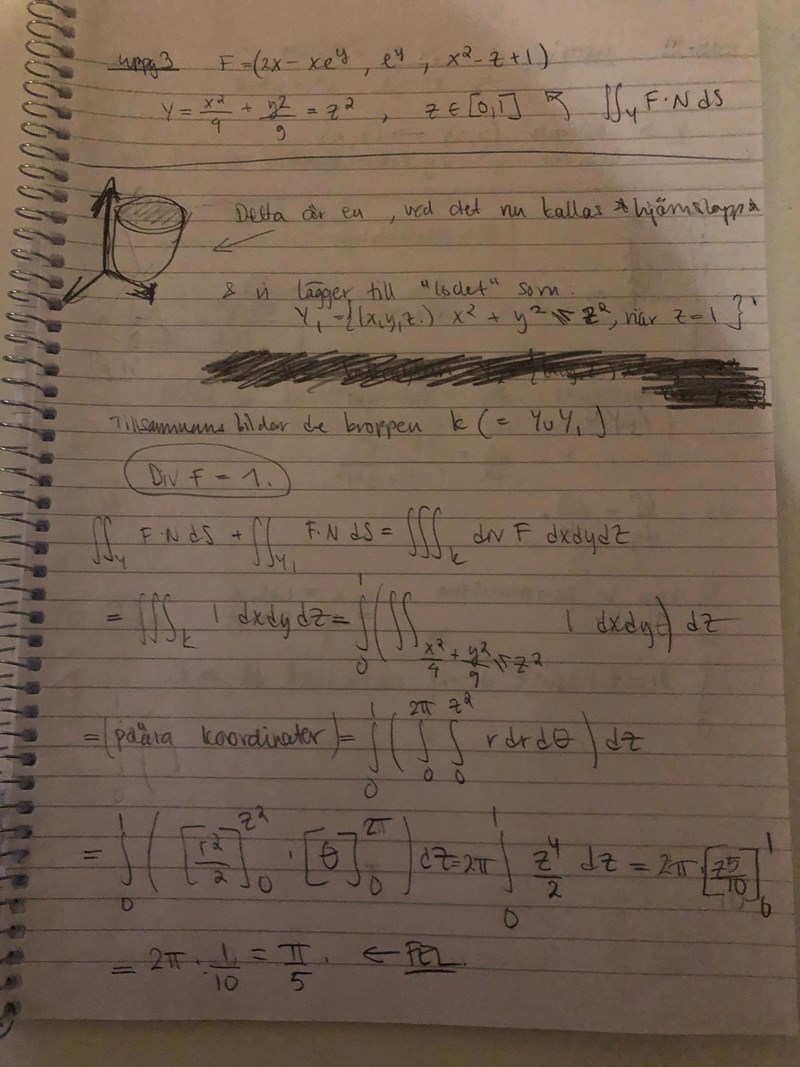 uppg 3 F = (2x - xe^y, e^y, x² - z + 1)
Y = x²/4 + y²/9 = z², z ∈ [0,1] ∬_Y F·N dS
Detta är en, vad det nu kallas
& vi lägger till "lodet" som
Y₁ = {(x,y,z) x² + y² ≤ z², när z = 1}
Tillsammans bildar de kroppen k (= Y∪Y₁)
Div F = 1.
∬_Y F·N dS + ∬_Y₁ F·N dS = ∭_k div F dxdydz
= ∭_k 1 dxdydz = ∫₀¹ (∬_{x²/4 + y²/9 ≤ z²} 1 dxdy) dz
= (polära koordinater) = ∫₀¹ (∫₀^{2π} ∫₀^{z²} r dr dθ) dz
= ∫₀¹ ([r²/2]₀^{z²} · [θ]₀^{2π}) dz = 2π ∫₀¹ z⁴/2 dz = 2π · [z⁵/10]₀¹
= 2π · 1/10 = π/5. ← FEL.